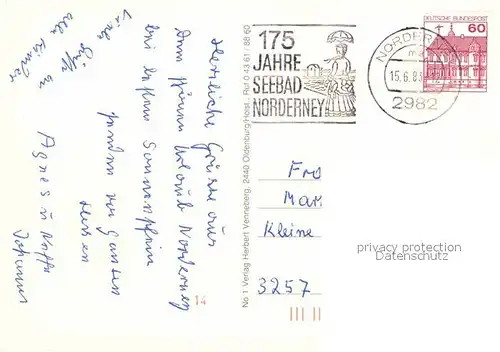 Herzliche Grüsse aus
dem schönen Urlaub Norderney
bei Sonnenschein
senden von ganzem
Herzen
Agnes u
Johannes
Viele Grüße an
alle Kinder
No 1 Verlag Herbert Venneberg, 2440 Oldenburg/Holst., Ruf 0 43 61 / 88 60
14
175
JAHRE
SEEBAD
NORDERNEY
NORDERN
15.6.8
2982
DEUTSCHE BUNDESPOST
60
Fra
Mar
Kleine
3257
privacy protection
Datenschutz